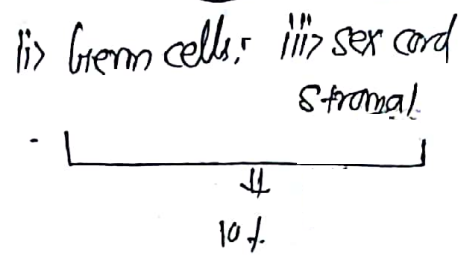 ii> Germ cells; iii> sex cord
stromal
10 %